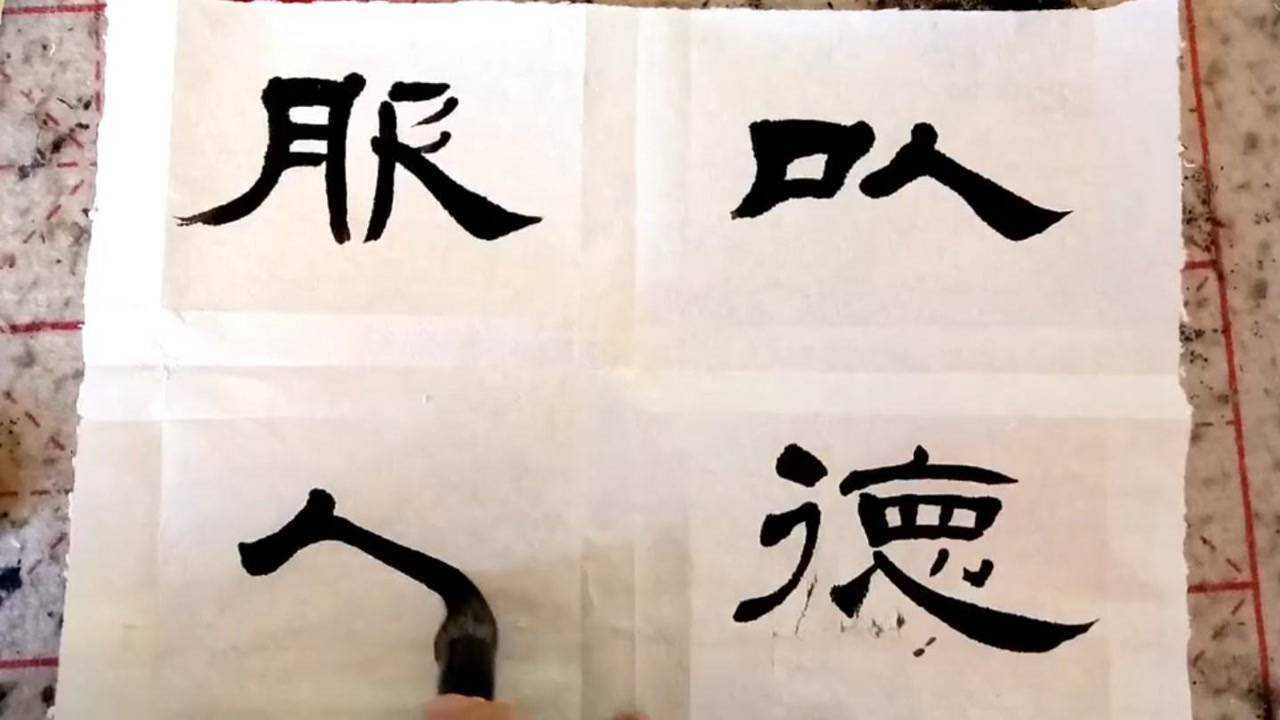 以德
服人